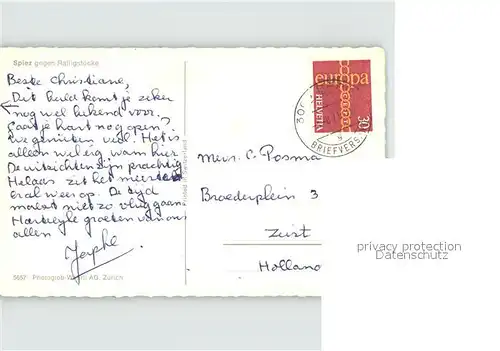 Spiez gegen Ralligstöcke
Beste Christiane,
Dit beeld komt je zeker
nog wel bekend voor.
Gaat je hart nog open?
We genieten veel. Het is
alleen wel erg warm hier.
De uitzichten zijn prachtig
Helaas zit het meer
al weer op. De tijd
maar niet zo vlug gaan
Hartelijke groeten van ons
allen
3657 Photoglob-Wehrli AG, Zürich
Printed in Switzerland
europa
HELVETIA
30
BRIEFVERS
Mevr. C. Posma
Broederplein 3
Zeist
Holland
privacy protection
Datenschutz